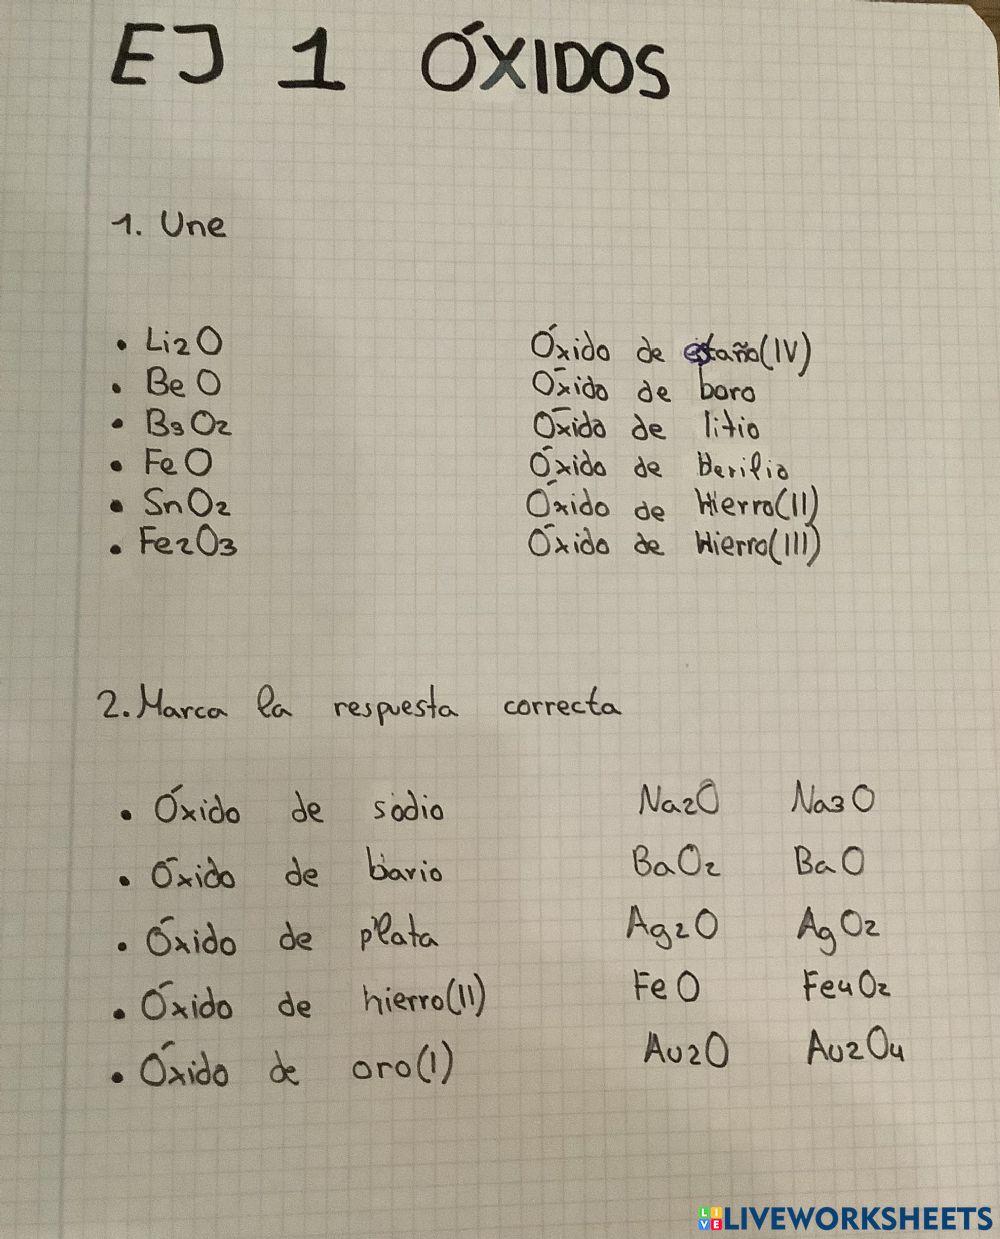 EJ 1 ÓXIDOS
1. Une
• Li2O Óxido de estaño(IV)
• BeO Óxido de boro
• B3O2 Óxido de litio
• FeO Óxido de Berilio
• SnO2 Óxido de Hierro(II)
• Fe2O3 Óxido de Hierro(III)
2. Marca la respuesta correcta
• Óxido de sodio Na2O Na3O
• Óxido de bario BaO2 BaO
• Óxido de plata Ag2O AgO2
• Óxido de hierro(II) FeO Fe4O2
• Óxido de oro(I) Au2O Au2O4
LIVEWORKSHEETS